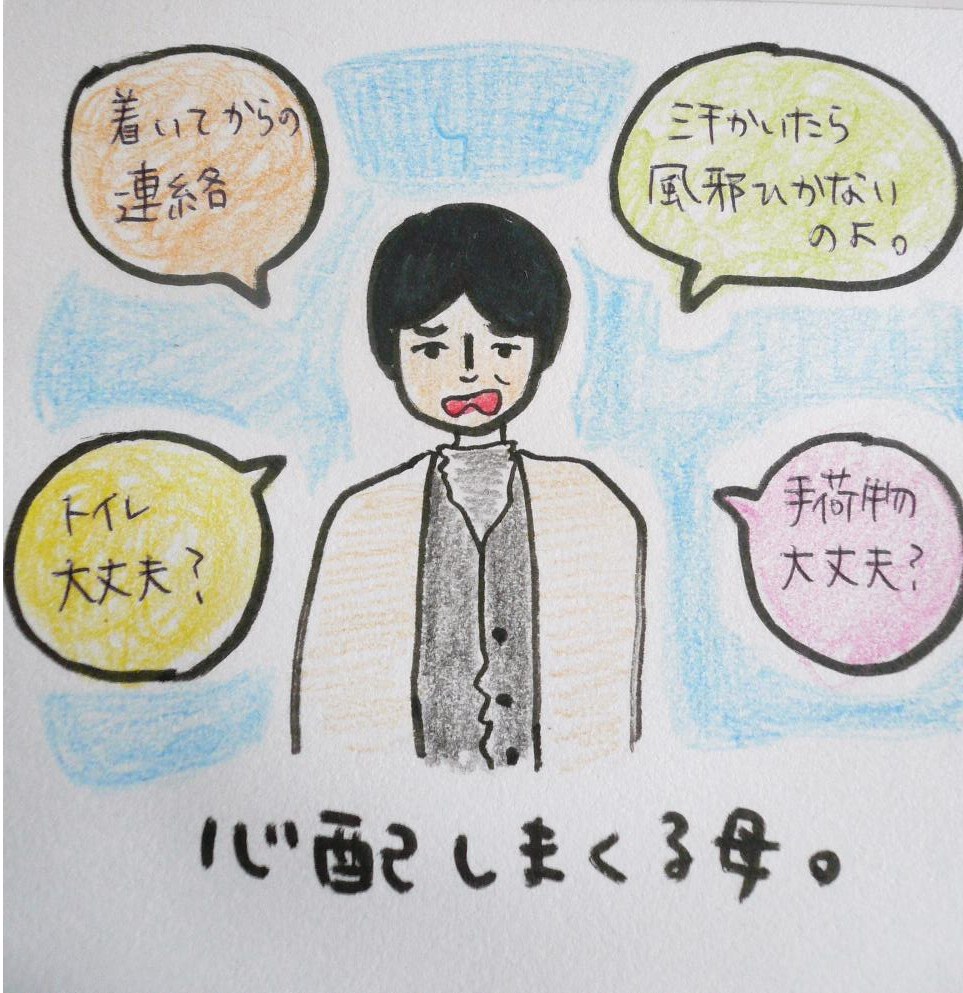 着いてからの
連絡
汗かいたら
風邪ひかない
のよ。
トイレ
大丈夫?
手荷物
大丈夫?
心配しまくる母。